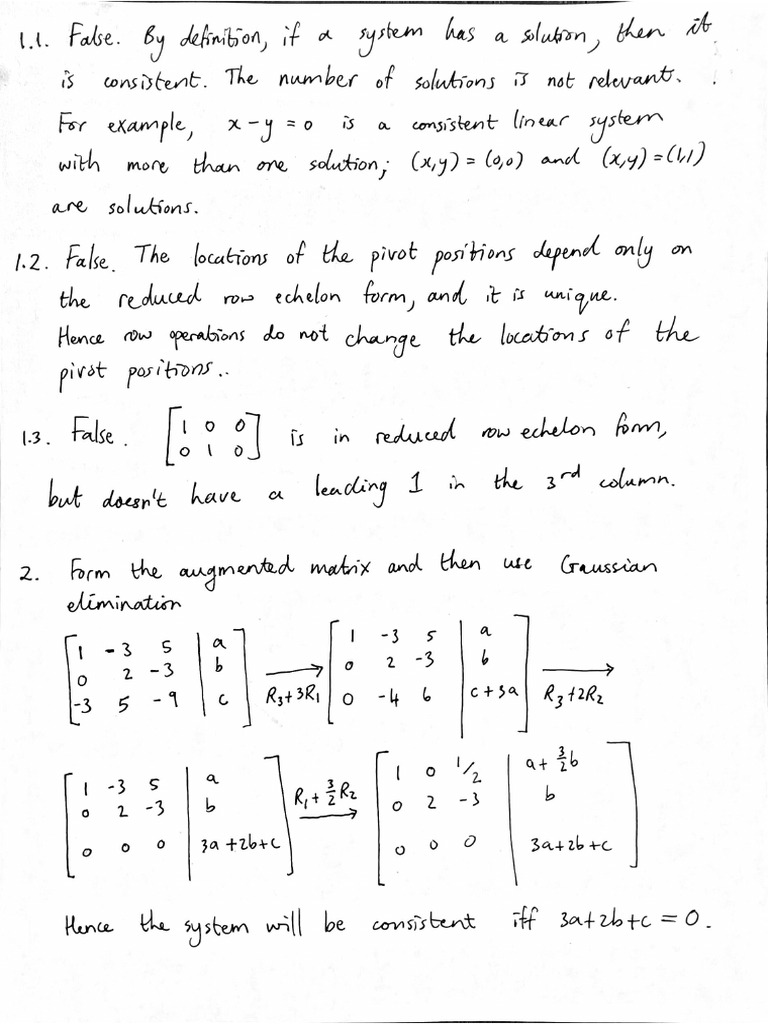 1.1. False. By definition, if a system has a solution, then it
is consistent. The number of solutions is not relevant.
For example, x - y = 0 is a consistent linear system
with more than one solution; (x,y) = (0,0) and (x,y) = (1,1)
are solutions.
1.2. False. The locations of the pivot positions depend only on
the reduced row echelon form, and it is unique.
Hence row operations do not change the locations of the
pivot positions..
1.3. False. [1 0 0; 0 1 0] is in reduced row echelon form,
but doesn't have a leading 1 in the 3rd column.
2. Form the augmented matrix and then use Gaussian
elimination
[1 -3 5 | a] [1 -3 5 | a]
[0 2 -3 | b] → [0 2 -3 | b] →
[-3 5 -9 | c] R3+3R1 [0 -4 6 | c+3a] R3+2R2
[1 -3 5 | a] [1 0 1/2 | a+3/2b]
[0 2 -3 | b] R1+3/2R2 → [0 2 -3 | b]
[0 0 0 | 3a+2b+c] [0 0 0 | 3a+2b+c]
Hence the system will be consistent iff 3a+2b+c = 0.